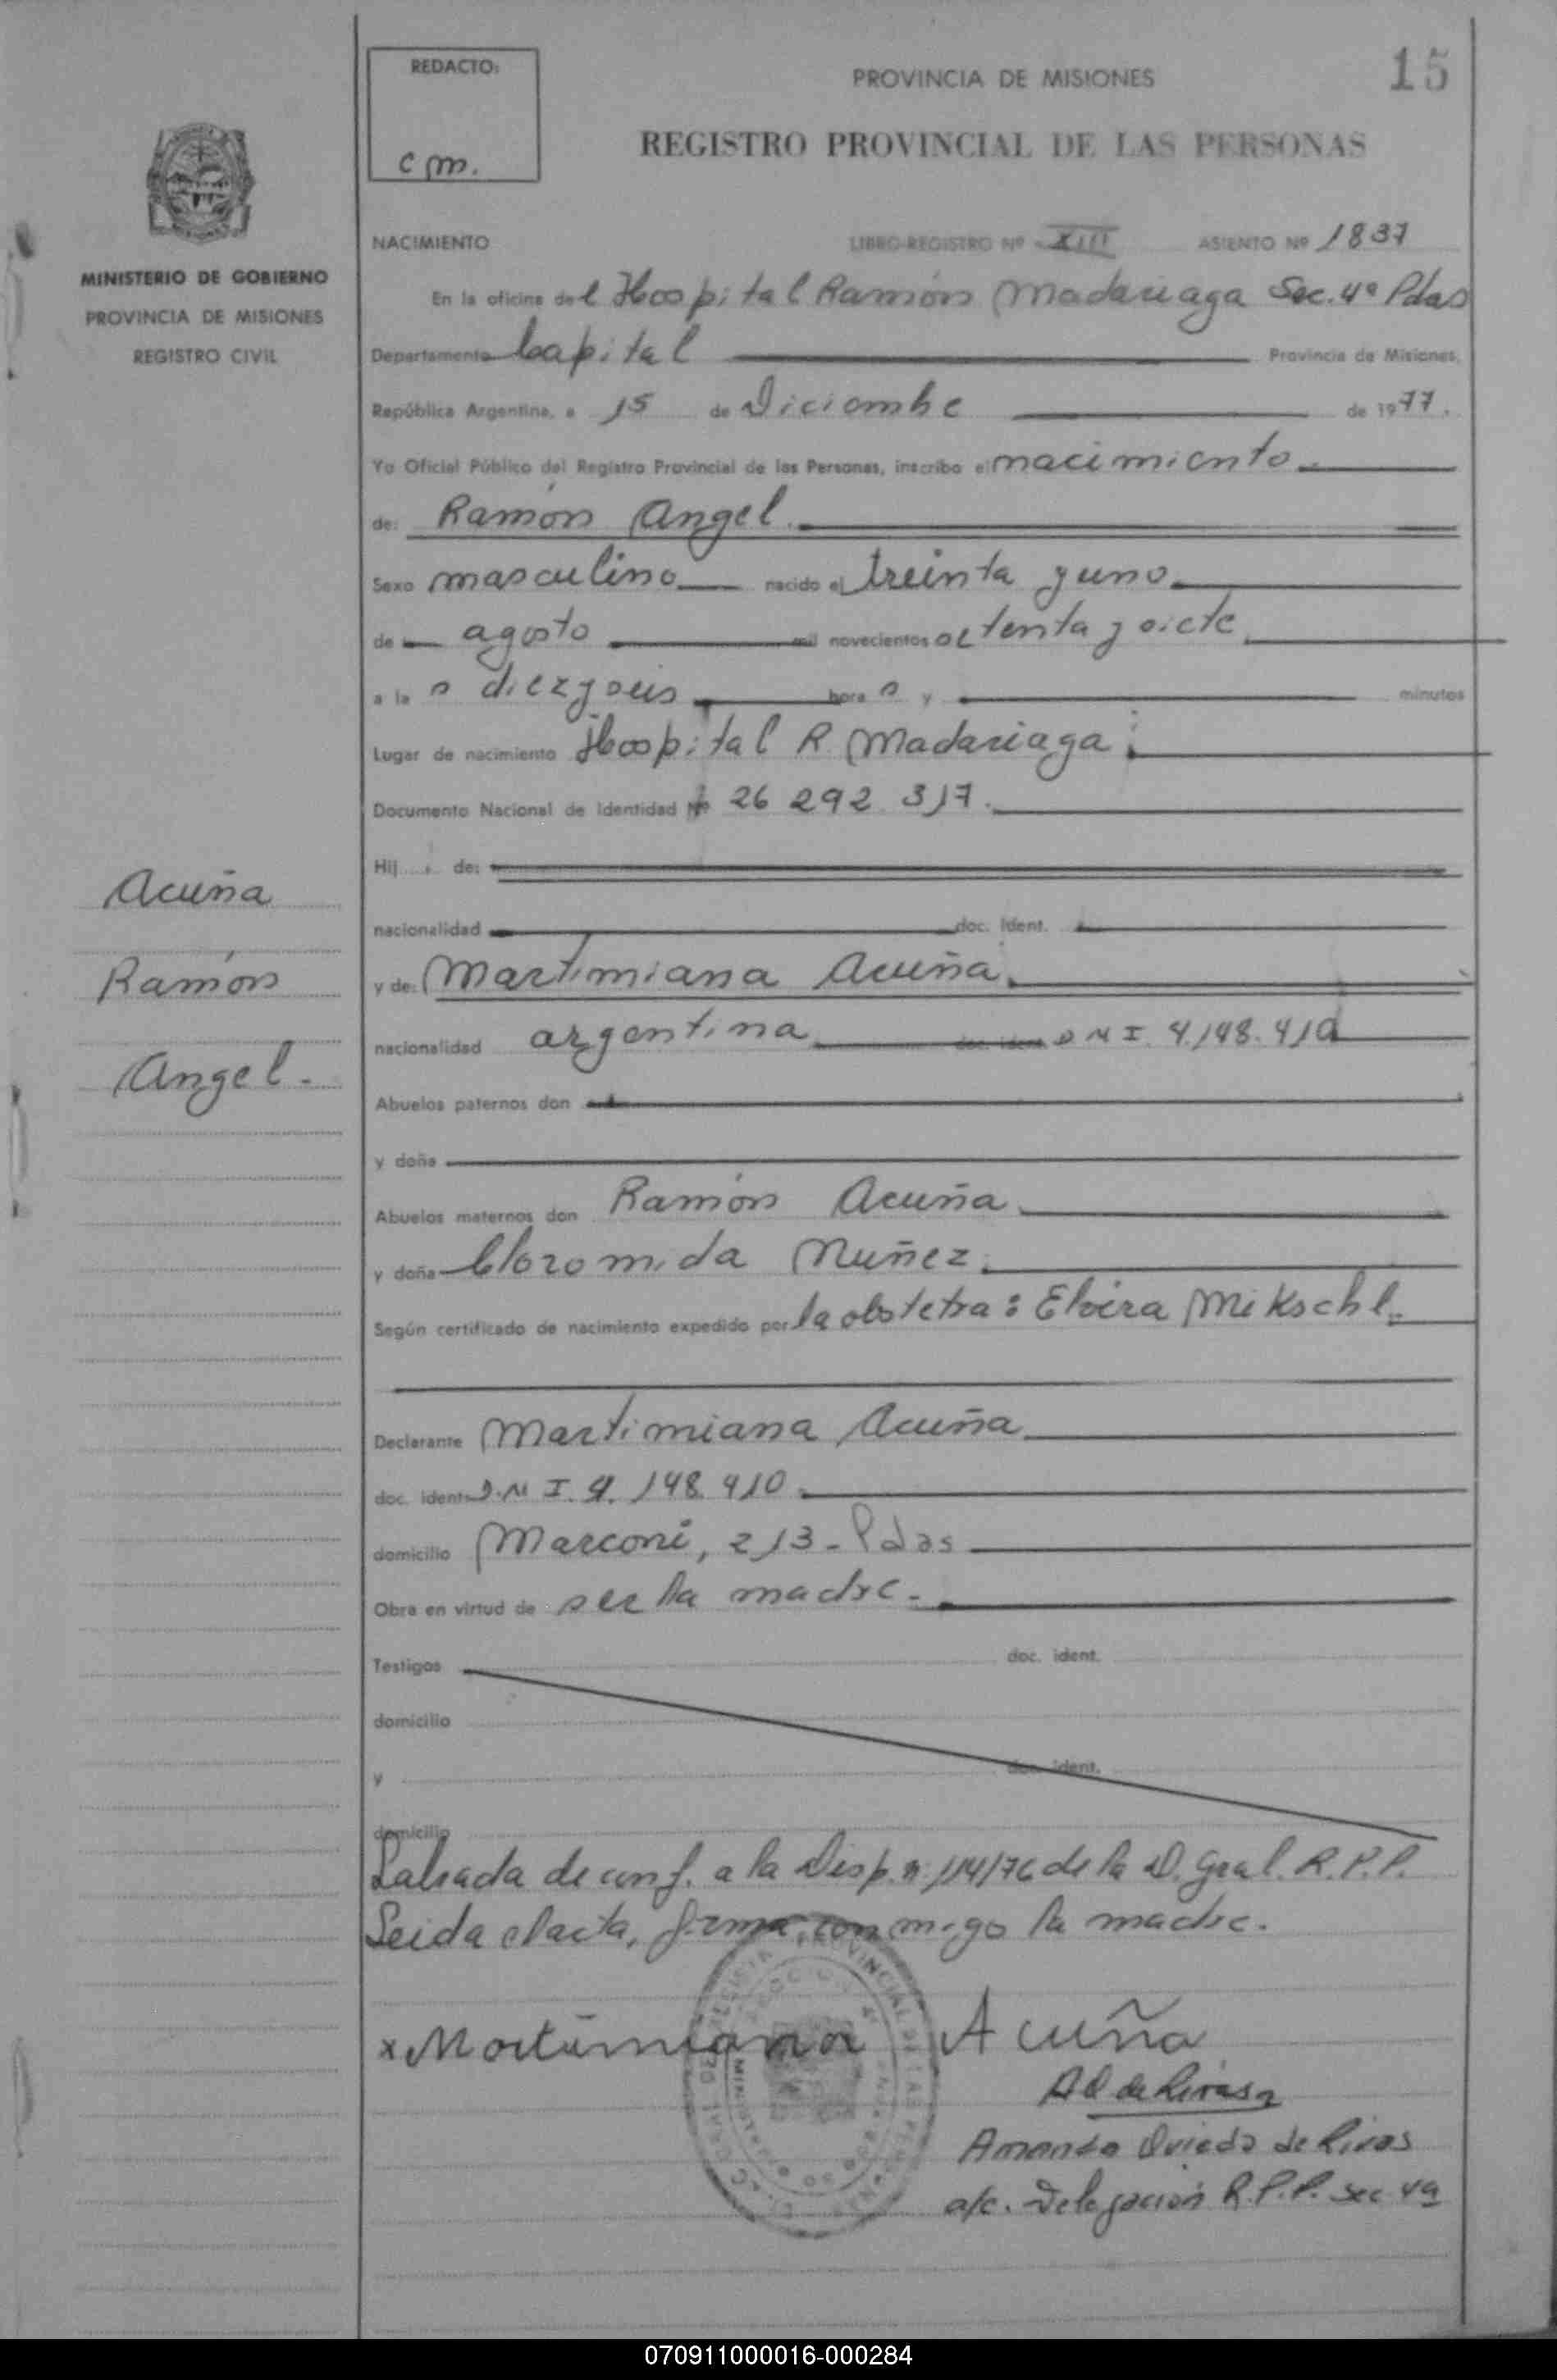 15
REDACTO:
c m.
PROVINCIA DE MISIONES
REGISTRO PROVINCIAL DE LAS PERSONAS
MINISTERIO DE GOBIERNO
PROVINCIA DE MISIONES
REGISTRO CIVIL
NACIMIENTO LIBRO-REGISTRO Nº XIII ASIENTO Nº 1837
En la oficina del Hospital Ramón Madariaga Sec. 4ª Pdas
Departamento Capital Provincia de Misiones,
República Argentina, a 15 de Diciembe de 1977.
Yo Oficial Público del Registro Provincial de las Personas, inscribo el nacimiento.
de: Ramón Angel.
Sexo masculino nacido el treinta y uno
de agosto mil novecientos setenta y siete
a las diez y seis horas y minutos
Lugar de nacimiento Hospital R. Madariaga
Documento Nacional de Identidad Nº 26 292 317.
Hij de:
nacionalidad doc. Ident.
y de: Martimiana Acuña.
nacionalidad argentina doc. ident. D N I. 4.148.410
Abuelos paternos don
y doña
Abuelos maternos don Ramón Acuña
y doña Cloromida Nuñez.
Según certificado de nacimiento expedido por la obstetra: Elvira Mikschl.
Declarante Martimiana Acuña
doc. ident. D.N I. 4. 148 410.
domicilio Marconi, 213 - Pdas
Obra en virtud de ser la madre.
Testigos doc. ident.
domicilio
y doc. ident.
domicilio
Labrada de conf. a la Disp. n. 114/76 de la D. Gral. R.P.P.
Leida el acta, firma conmigo la madre.
x Martimiana Acuña
Amanda Oviedo de Rivas
a/c. Delegación R.P.P. sec 4ª
Acuña
Ramón
Angel.
070911000016-000284